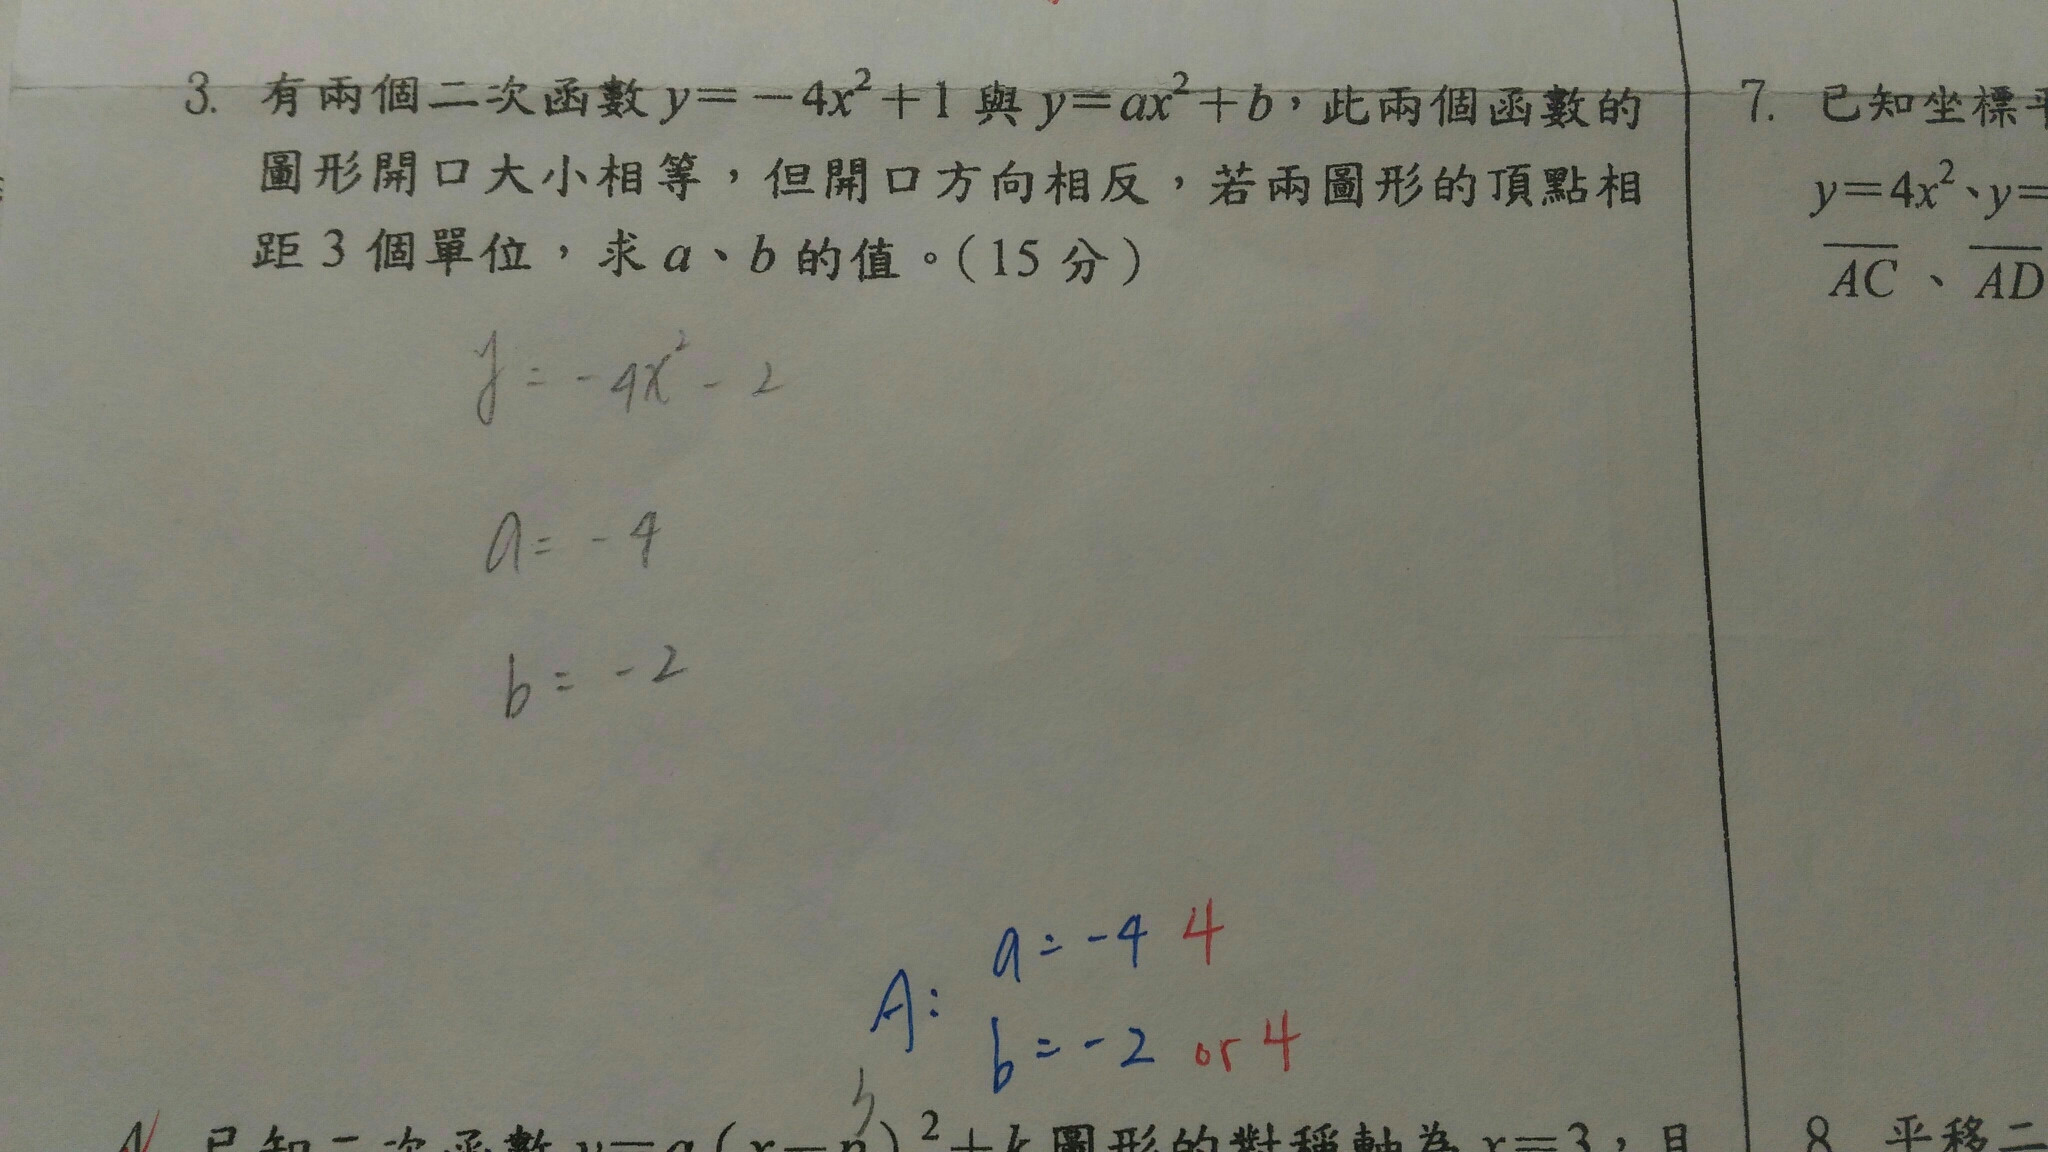 3. 有兩個二次函數 y=-4x²+1 與 y=ax²+b，此兩個函數的
圖形開口大小相等，但開口方向相反，若兩圖形的頂點相
距 3 個單位，求 a、b 的值。(15 分)
y = -4x² - 2
a = -4
b = -2
A: a = -4 4
b = -2 or 4
已知二次函數 y=a(x-h)²+k 圖形的對稱軸為 x=3，且
7. 已知坐標平
y=4x²、y=
AC、AD
8. 平移二